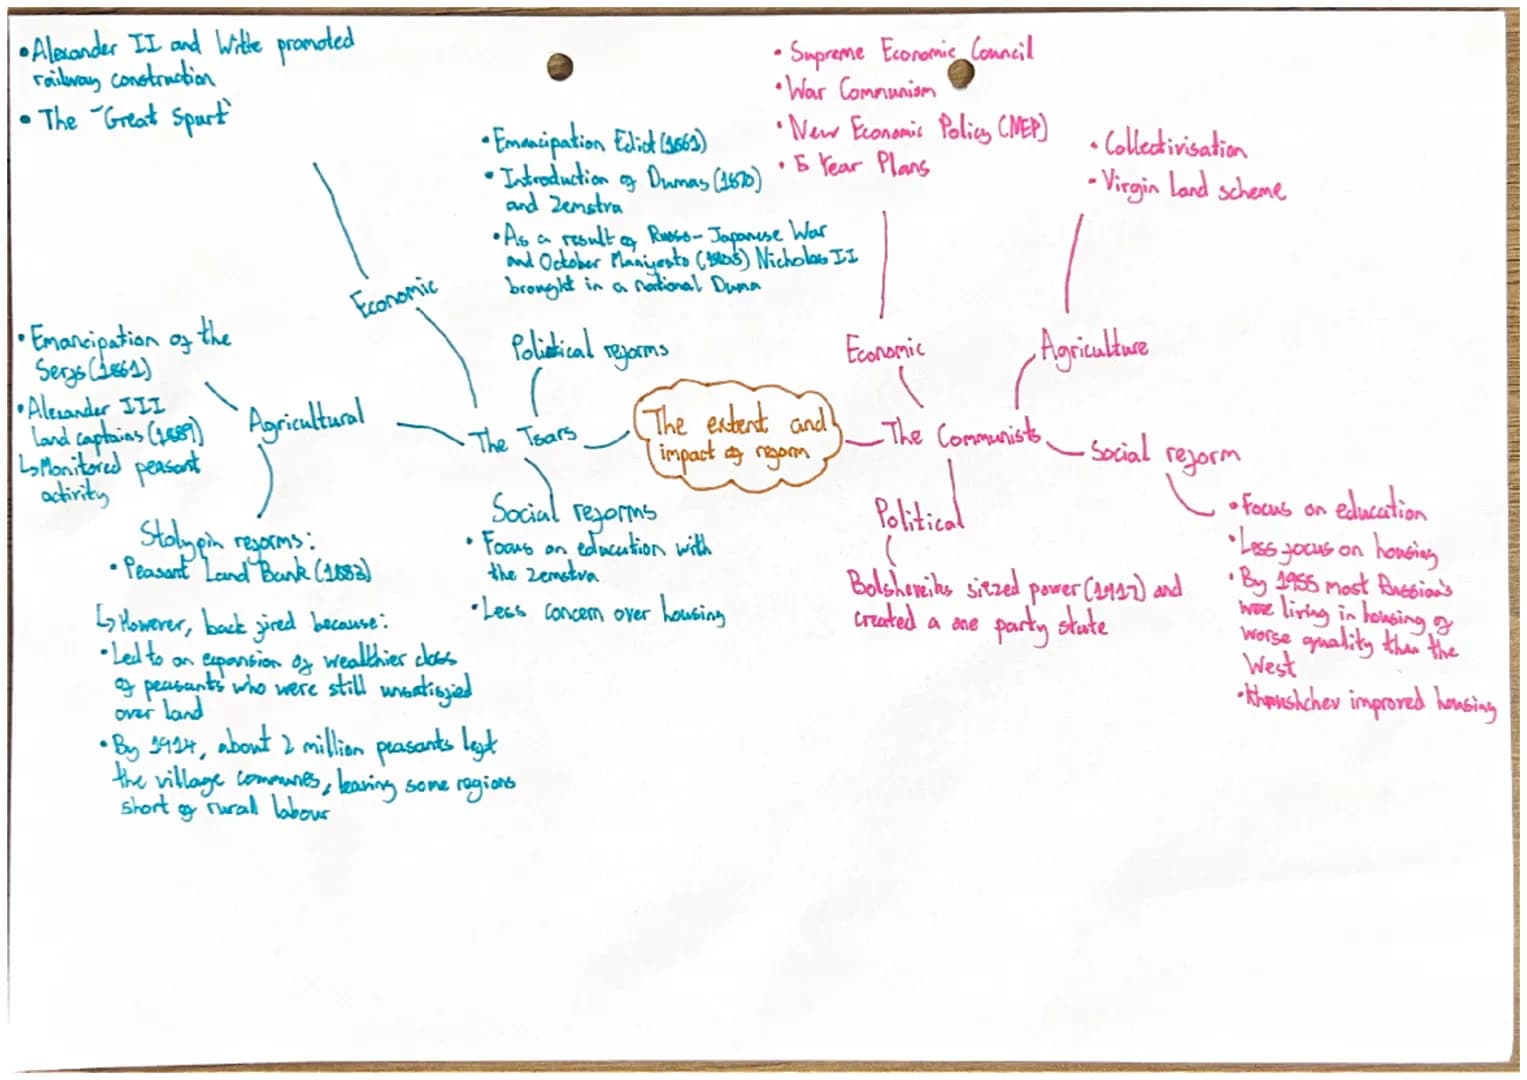 •Alexander II and Witte promoted
railway construction
• The "Great Spurt"
Economic
•Emancipation Edict (1861)
• Introduction of Dumas (1870)
and Zemstva
•As a result of Russo-Japanese War
and October Manifesto (1905) Nicholas II
brought in a national Duma
Political reforms
• Emancipation of the
Serfs (1861)
•Alexander III
land captains (1889)
↳Monitored peasant
activity
Agricultural
The Tsars
Stolypin reforms:
• Peasant Land Bank (1883)
↳However, back fired because:
•Led to an expansion of wealthier class
of peasants who were still unsatisfied
over land
•By 1914, about 2 million peasants left
the village communes, leaving some regions
short of rural labour
Social reforms
• Focus on education with
the Zemstva
•Less concern over housing
The extent and
impact of reform
• Supreme Economic Council
•War Communism
• New Economic Policy (NEP)
• 5 Year Plans
Economic
• Collectivisation
• Virgin Land scheme
Agriculture
The Communists
Political
Bolsheveiks sitzed power (1917) and
created a one party state
Social reform
•Focus on education
•Less focus on housing
•By 1955 most Russian's
were living in housing of
worse quality than the
West
•Khrushchev improved housing